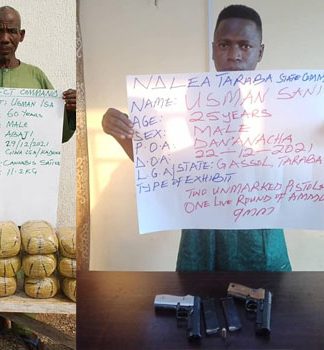 CT COMMAND
USMAN ISA
60 YEARS
MALE
ABAJI
29/12/2021
11.2KG
NDLEA TARABA STATE COMM
NAME: USMAN SANI
AGE: 25YEARS
SEX: MALE
P.O.A: DAN'ANACHA
D.O.A: 22-12-2021
LGA/STATE: GASSOL, TARABA
TYPE OF EXHIBIT
TWO UNMARKED PISTOLS
ONE LIVE ROUND OF AMMO
9MM